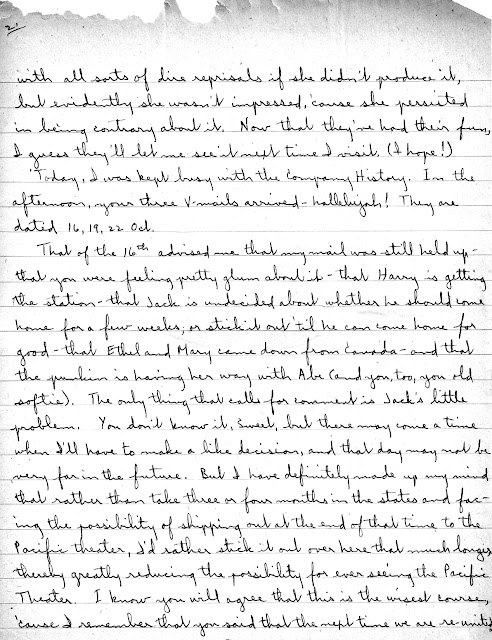 2.
with all sorts of dire reprisals if she didn't produce it,
but evidently she wasn't impressed, 'cause she persisted
in being contrary about it. Now that they've had their fun,
I guess they'll let me see it next time I visit. (I hope!)
Today, I was kept busy with the Company History. In the
afternoon, your three V-mails arrived - hallelujah! They are
dated 16, 19, 22 Oct.
That of the 16th advised me that my mail was still held up -
that you were feeling pretty glum about it - that Harry is getting
the station - that Jack is undecided about whether he should come
home for a few weeks, or stick it out 'til he can come home for
good - that Ethel and Mary came down from Canada - and that
the punkin is having her way with Abe (and you, too, you old
softie). The only thing that calls for comment is Jack's little
problem. You don't know it, Sweet, but there may come a time
when I'll have to make a like decision, and that day may not be
very far in the future. But I have definitely made up my mind
that rather than take three or four months in the states and fac-
ing the possibility of shipping out at the end of that time to the
Pacific theater, I'd rather stick it out over here that much longer
thereby greatly reducing the possibility for ever seeing the Pacific
Theater. I know you will agree that this is the wisest course,
'cause I remember that you said that the next time we are re-united